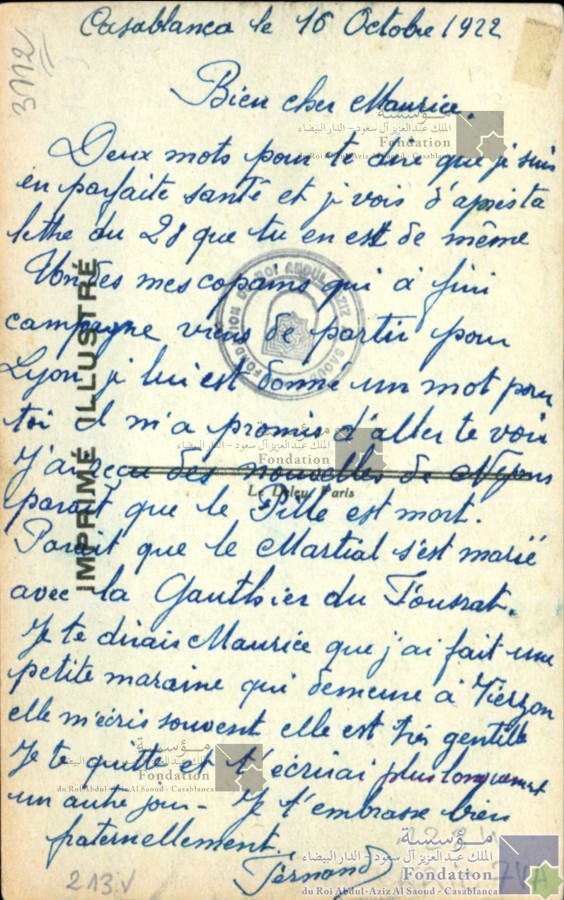 3112
Casablanca le 16 Octobre 1922
Bien cher Maurice.
Deux mots pour te dire que j suis
en parfaite santé et j vois d'apris ta
lettre du 28 que tu en est de même
Un des mes copains qui a fini
campagne viens de partir pour
Lyon j lui est donné un mot pour
toi il m'a promis d'aller te voir
J'ai reçu des nouvelles de
parait que le Pille est mort.
Parait que le Martial s'est marié
avec la Gauthier du
Je te dirais Maurice que j'ai fait une
petite maraine qui demeure à Vierzon
elle m'écris souvent elle est très gentille
Je te quitte et t'écrirai plus longuement
un autre jour - Je t'embrasse bien
fraternellement.
Fernand
213v
IMPRIMÉ ILLUSTRÉ
Le Deley, Paris
FONDATION DU ROI ABDUL AZIZ
مؤسسة
الملك عبدالعزيز آل سعود - الدار البيضاء
Fondation
du Roi Abdul-Aziz Al Saoud - Casablanca
الملك عبدالعزيز آل سعود - الدار البيضاء
Fondation
مؤسسة
Fondation
du Roi Abdul-Aziz Al Saoud - Casablanca
مؤسسة
الملك عبدالعزيز آل سعود - الدار البيضاء
Fondation
du Roi Abdul-Aziz Al Saoud - Casablanca